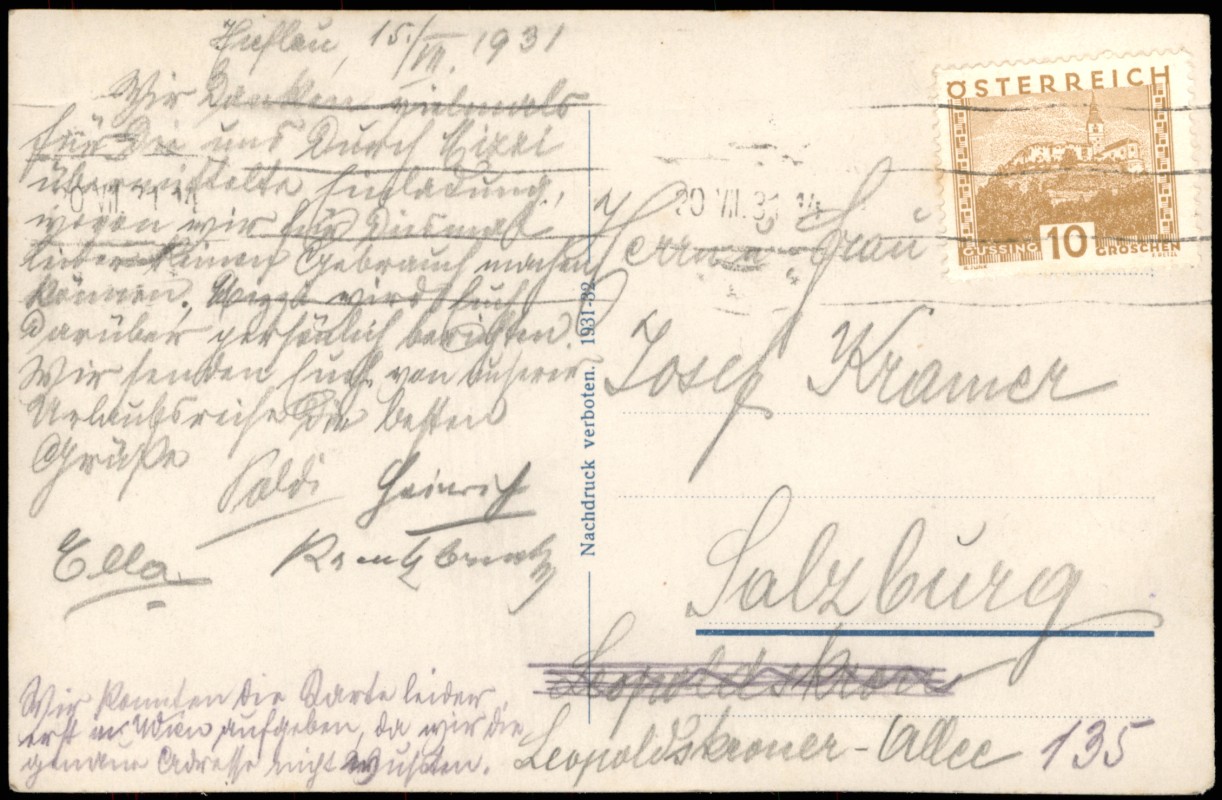 Hieflau, 15./VII. 1931
Wir danken vielmals
für die uns durch Mizzi
übermittelte Einladung,
wovon wir für diesmal
leider keinen Gebrauch machen
können. Mizzi wird Euch
darüber persönlich berichten.
Wir senden Euch von unserer
Urlaubsreise die besten
Grüße
Poldi Heinrich
Ella
Wir konnten die Karte leider
erst in Wien aufgeben, da wir die
genaue Adresse nicht wußten.
Nachdruck verboten. 1931-32
ÖSTERREICH
GÜSSING 10 GROSCHEN
20 VII. 31 14
Herrn u Frau
Josef Kramer
Salzburg
Leopoldskron
Leopoldskroner-Allee 135